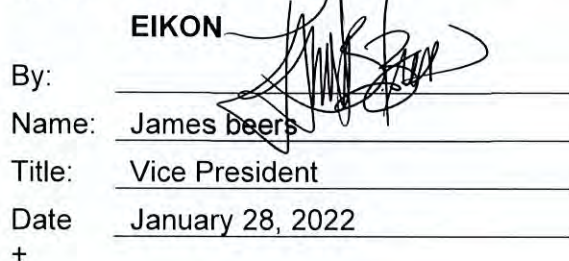 EIKON
By:
Name: James beers
Title: Vice President
Date January 28, 2022
+